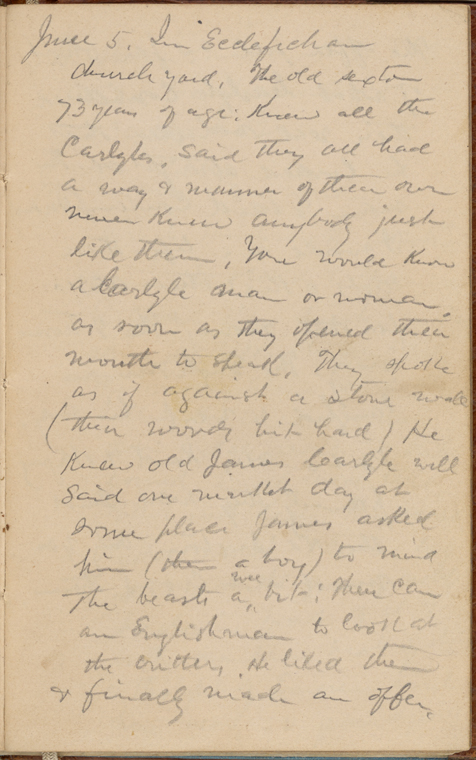 June 5. In Ecclefechan
church yard. The old sexton
73 years of age: Knew all the
Carlyles, said they all had
a way & manner of their own
never knew anybody just
like them, You would know
a Carlyle man or woman
as soon as they opened their
mouth to speak. They spoke
as if against a stone wall
(their words hit hard) He
Knew old James Carlyle well
said one market day at
some place James asked
him (then a boy) to mind
The beasts a wee bit: then came
an Englishman to look at
the critters, He liked them
& finally made an offer,